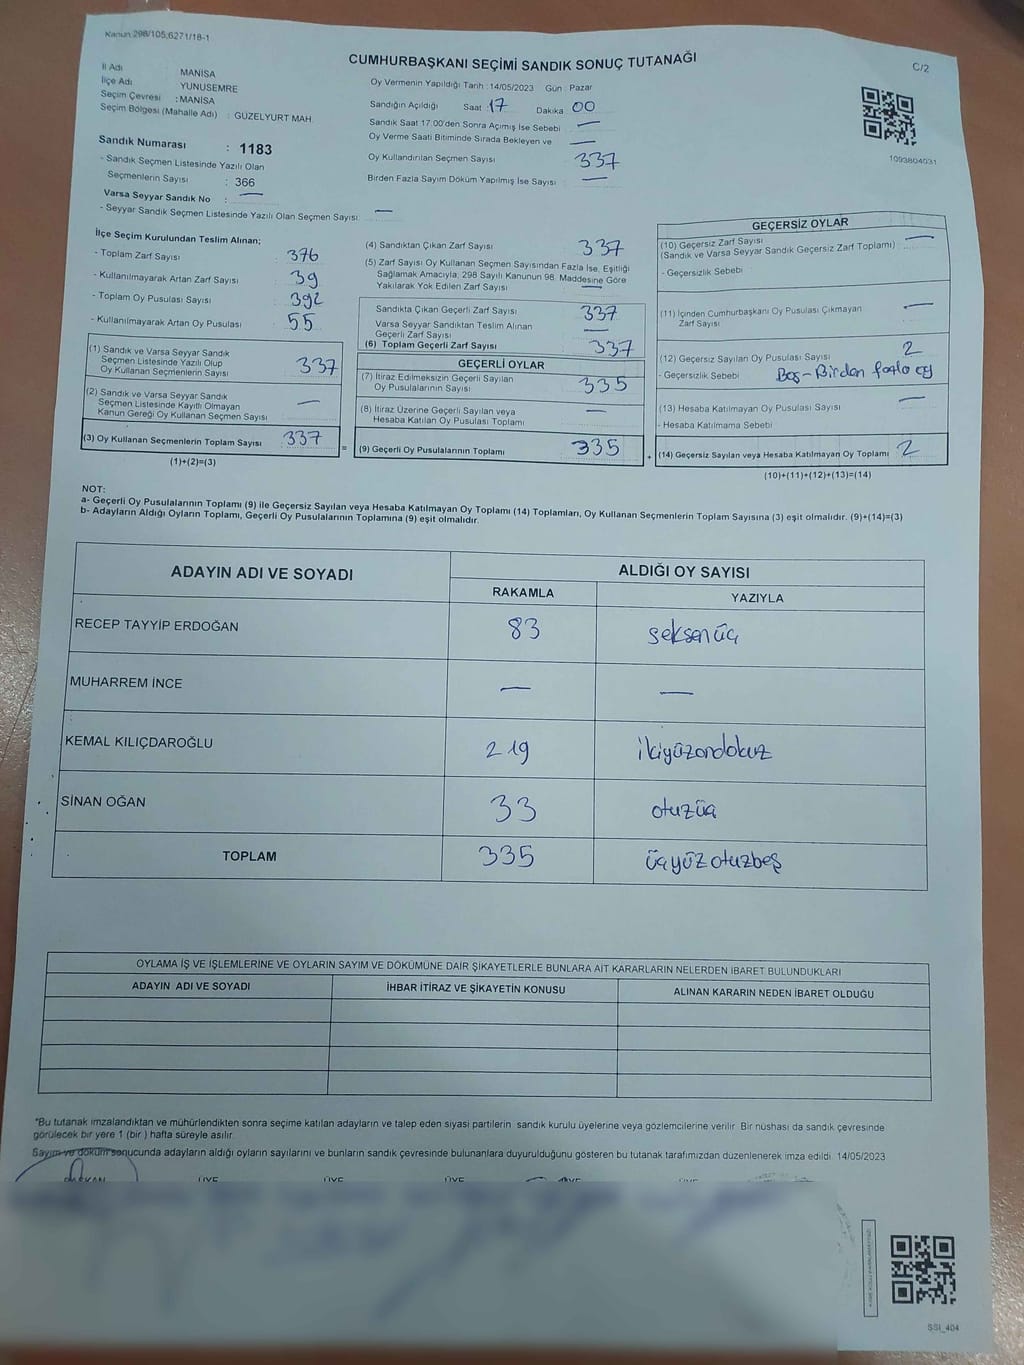 Kanun 298/105,6271/18-1
CUMHURBAŞKANI SEÇİMİ SANDIK SONUÇ TUTANAĞI
C/2
İl Adı MANİSA
İlçe Adı YUNUSEMRE
Seçim Çevresi : MANİSA
Seçim Bölgesi (Mahalle Adı) : GÜZELYURT MAH.
Sandık Numarası : 1183
- Sandık Seçmen Listesinde Yazılı Olan
Seçmenlerin Sayısı : 366
Varsa Seyyar Sandık No : —
- Seyyar Sandık Seçmen Listesinde Yazılı Olan Seçmen Sayısı: —
Oy Vermenin Yapıldığı Tarih : 14/05/2023 Gün : Pazar
Sandığın Açıldığı Saat 17 Dakika 00
Sandık Saat 17:00'den Sonra Açımış İse Sebebi —
Oy Verme Saati Bitiminde Sırada Bekleyen ve —
Oy Kullandırılan Seçmen Sayısı 337
Birden Fazla Sayım Döküm Yapılmış İse Sayısı —
1093804031
İlçe Seçim Kurulundan Teslim Alınan;
- Toplam Zarf Sayısı 376
- Kullanılmayarak Artan Zarf Sayısı 39
- Toplam Oy Pusulası Sayısı 392
- Kullanılmayarak Artan Oy Pusulası 55
(1) Sandık ve Varsa Seyyar Sandık
Seçmen Listesinde Yazılı Olup
Oy Kullanan Seçmenlerin Sayısı 337
(2) Sandık ve Varsa Seyyar Sandık
Seçmen Listesinde Kayıtlı Olmayan
Kanun Gereği Oy Kullanan Seçmen Sayısı —
(3) Oy Kullanan Seçmenlerin Toplam Sayısı 337 =
(1)+(2)=(3)
(4) Sandıktan Çıkan Zarf Sayısı 337
(5) Zarf Sayısı Oy Kullanan Seçmen Sayısından Fazla İse, Eşitliği
Sağlamak Amacıyla; 298 Sayılı Kanunun 98. Maddesine Göre
Yakılarak Yok Edilen Zarf Sayısı —
Sandıkta Çıkan Geçerli Zarf Sayısı 337
Varsa Seyyar Sandıktan Teslim Alınan
Geçerli Zarf Sayısı —
(6) Toplam Geçerli Zarf Sayısı 337
GEÇERLİ OYLAR
(7) İtiraz Edilmeksizin Geçerli Sayılan
Oy Pusulalarının Sayısı 335
(8) İtiraz Üzerine Geçerli Sayılan veya
Hesaba Katılan Oy Pusulası Toplamı —
(9) Geçerli Oy Pusulalarının Toplamı 335 +
GEÇERSİZ OYLAR
(10) Geçersiz Zarf Sayısı —
(Sandık ve Varsa Seyyar Sandık Geçersiz Zarf Toplamı)
- Geçersizlik Sebebi
(11) İçinden Cumhurbaşkanı Oy Pusulası Çıkmayan —
Zarf Sayısı
(12) Geçersiz Sayılan Oy Pusulası Sayısı 2
- Geçersizlik Sebebi Boş-Birden fazla oy
(13) Hesaba Katılmayan Oy Pusulası Sayısı —
- Hesaba Katılmama Sebebi
(14) Geçersiz Sayılan veya Hesaba Katılmayan Oy Toplamı 2
(10)+(11)+(12)+(13)=(14)
NOT:
a- Geçerli Oy Pusulalarının Toplamı (9) ile Geçersiz Sayılan veya Hesaba Katılmayan Oy Toplamı (14) Toplamları, Oy Kullanan Seçmenlerin Toplam Sayısına (3) eşit olmalıdır. (9)+(14)=(3)
b- Adayların Aldığı Oyların Toplamı, Geçerli Oy Pusulalarının Toplamına (9) eşit olmalıdır.
ADAYIN ADI VE SOYADI ALDIĞI OY SAYISI
RAKAMLA YAZIYLA
RECEP TAYYİP ERDOĞAN 83 seksenüç
MUHARREM İNCE — —
KEMAL KILIÇDAROĞLU 219 ikiyüzondokuz
SİNAN OĞAN 33 otuzüç
TOPLAM 335 üçyüzotuzbeş
OYLAMA İŞ VE İŞLEMLERİNE VE OYLARIN SAYIM VE DÖKÜMÜNE DAİR ŞİKAYETLERLE BUNLARA AİT KARARLARIN NELERDEN İBARET BULUNDUKLARI
ADAYIN ADI VE SOYADI İHBAR İTİRAZ VE ŞİKAYETİN KONUSU ALINAN KARARIN NEDEN İBARET OLDUĞU
*Bu tutanak imzalandıktan ve mühürlendikten sonra seçime katılan adayların ve talep eden siyasi partilerin sandık kurulu üyelerine veya gözlemcilerine verilir. Bir nüshası da sandık çevresinde
görülecek bir yere 1 (bir ) hafta süreyle asılır.
Sayım ve döküm sonucunda adayların aldığı oyların sayılarını ve bunların sandık çevresinde bulunanlara duyurulduğunu gösteren bu tutanak tarafımızdan düzenlenerek imza edildi. 14/05/2023
BAŞKAN ÜYE ÜYE ÜYE ÜYE ÜYE
SSI_404